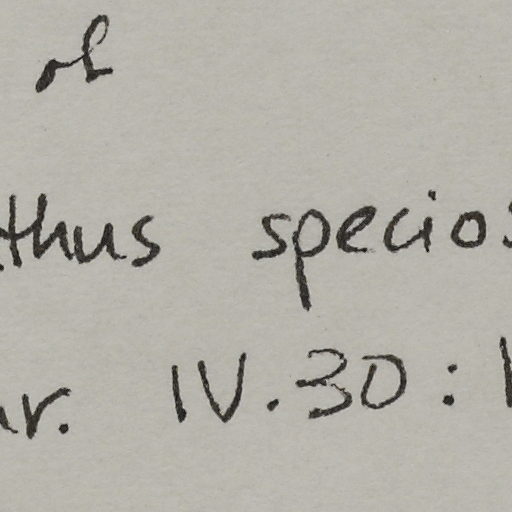 of
thus specios
r. IV.30: